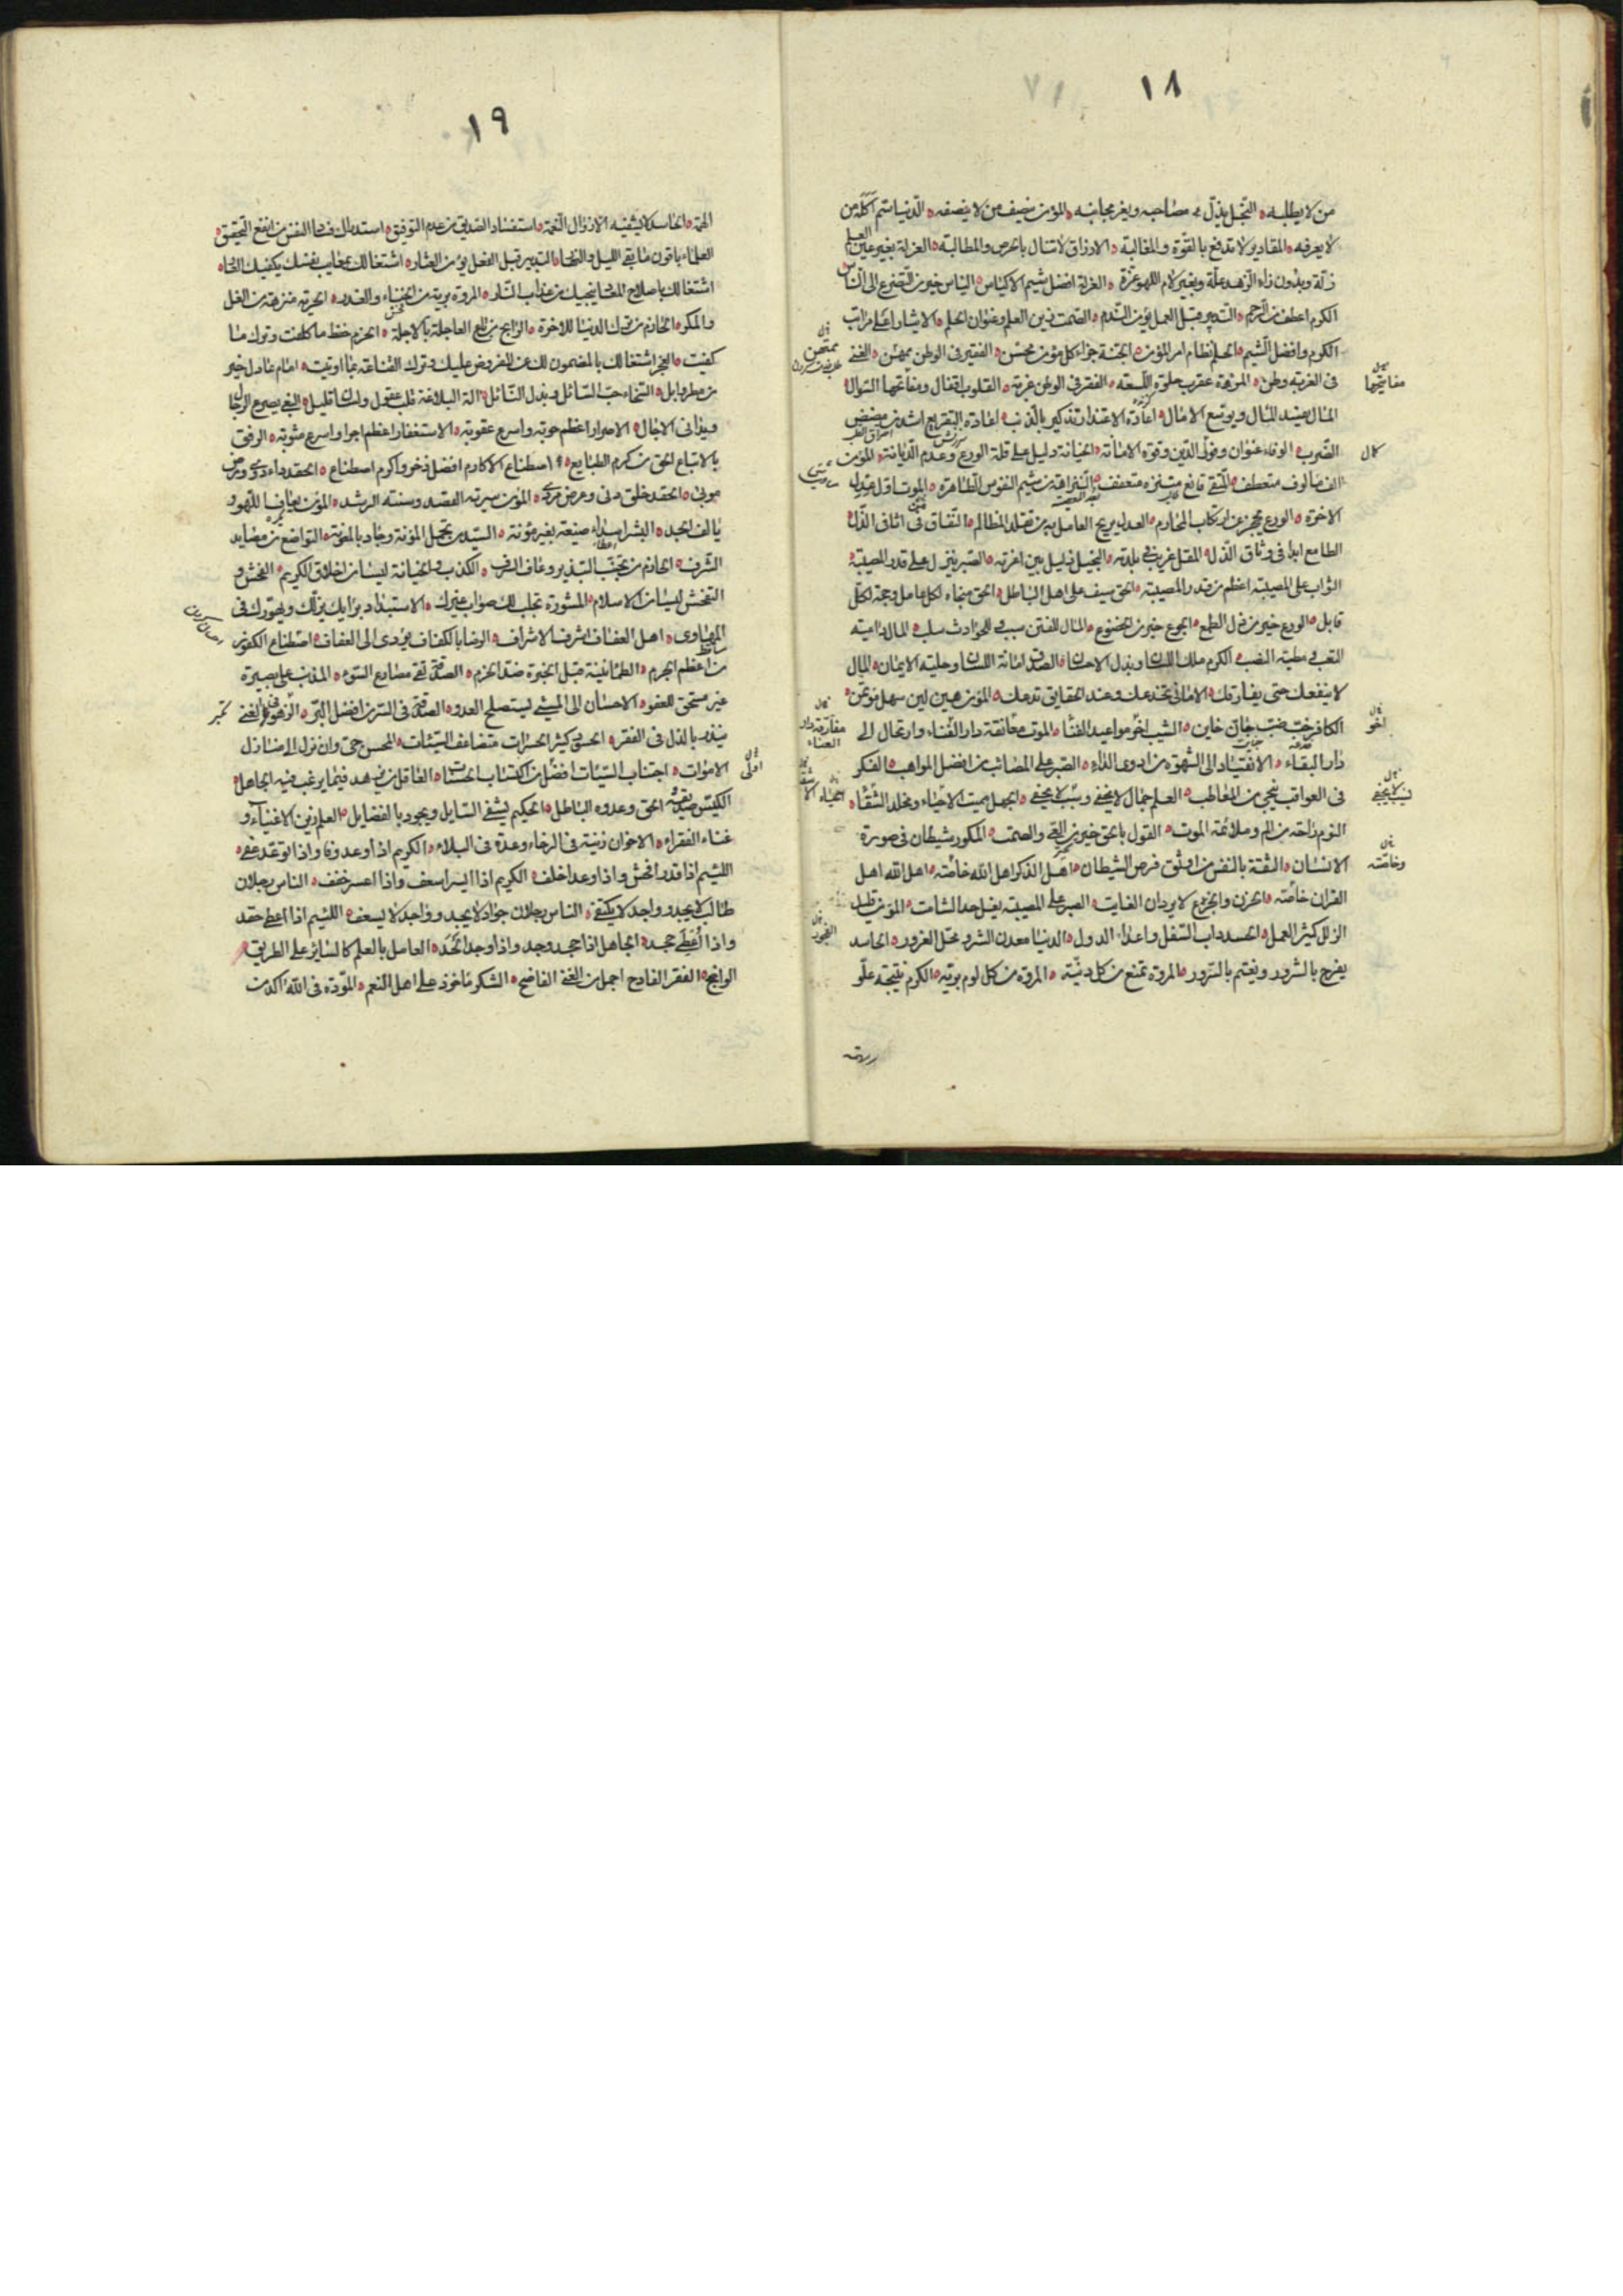 ١٨
من لا يطلبه الدنيا سم آكله من
لا يعرفه المقادير لا تدفع بالقوة والمغالبة الارزاق لا تنال بالحرص والمطالبة العزلة بغير عين العلم
زلة وبدون زاء الزهد علة العزلة افضل شيم الاكياس الياس خير من التضرع الى الناس
الكرم اعطف من الرحم التدبير قبل العمل يؤمن الندم الصمت زين العلم وعنوان الحلم الايثار اعلى مراتب
الكرم وافضل الشيم الحلم نظام امر المؤمن الجنة جزاء كل مؤمن محسن الفقير فى الوطن ممتهن الغنى
فى الغربة وطن المرءة عقرب حلوة اللسعة الفقر فى الوطن غربة القلوب اقفال ومفاتحها السؤال
المال يفسد المال ويوسع الامال اعادة الاعتذار تذكير بالذنب اعادة التقريع اشد من مضض
الضرب الوفاء عنوان وفور الدين وقوة الامانة الخيانة دليل على قلة الورع وعدم الديانة المؤمن
الف مألوف متعطف المتقى قانع متنزه متعفف النزاهة من شيم النفوس الطاهرة الموت اول عدل
الاخرة الورع يحجز عن ارتكاب المحارم العدل يريح العامل به من تقلد المظالم النفاق من اثافى الذل
الطامع ابدا فى وثاق الذل المقل غريب فى بلدته البخيل ذليل بين اعزته الصبر ينزل على قدر المصيبة
الثواب على المصيبة اعظم من قدر المصيبة الحق سيف على اهل الباطل الحق منجاه لكل عامل وحجة لكل
قايل الورع خير من ذل الطمع الجوع خير من الخضوع المال للفتن سبب وللحوادث سلب المال داعية
التعب ومطية النصب الكرم ملك اللسان وبذل الاحسان الصدق امانة اللسان وحلية الايمان المال
لا ينفعك حتى يفارقك الامانى تخدعك وعند الحقايق تدعك المؤمن هين لين سهل مؤتمن
الكافر خب ضب جاف خاين الشيب اخر مواعيد الفناء الموت مفارقة دار الفناء وارتحال الى
دار البقاء الانقياد الى الشهوة من ادوى الداء الصبر على المصائب من افضل المواهب الفكر
فى العواقب ينجى من المعاطب العلم جمال لا يخفى ونسب لا يجفى الجهل مميت الاحياء ومخلد الشقاء
النوم راحة من الم وملائمة الموت القول بالحق خير من العى والصمت المكور شيطان فى صورة
الانسان الثقة بالنفس من اوثق فرص الشيطان اهل الذكر اهل الله خاصته اهل الله اهل
القران خاصته الحزن والجزع لا يردان الفايت الصبر على المصيبة يفل حد الشامت المؤمن قليل
الزلل كثير العمل الحسد داب السفل واعداء الدول الدنيا معدن الشر ومحل الغرور الحاسد
يفرح بالشرور ويغتم بالسرور المروة تمنع من كل دنية المروة من كل لوم برية الكرم نتيجة علو
مفاتيحها
كمال
وخاصته
الفجور
١٩
الهمة الحاسد لا يشفيه الا زوال النعمة استفساد الصديق من عدم التوفيق استدراك فساد النفس من انفع التحقيق
العلماء باقون ما بقى الليل والنهار التدبير قبل الفعل يؤمن العثار اشتغالك بمعايب نفسك يكفيك العار
اشتغالك باصلاح المعاد ينجيك من عذاب النار المروة برية من الخناء والغدر الحرية منزهة من الغل
والمكر الحازم من ترك الدنيا للاخرة الرابح من باع العاجلة بالاجلة الحزم حفظ ما كلفت وترك ما
كفيت العجز اشتغالك بالمضمون لك عن المفروض عليك وترك القناعة بما اوتيت امام عادل خير
من مطر وابل السخاء حب السائل وبذل النائل الة البلاغة قلب عقول ولسان قايل البغى يصرع الرجال
ويدانى الاجال الاصرار اعظم حوبة واسرع عقوبة الاستغفار اعظم اجرا واسرع مثوبة الرفق
بالاتباع الحق من كرم الطبايع اصطناع الاكارم افضل ذخر واكرم اصطناع الحقد داء دوى ومرض
موبى الحقد خلق دنى وعرض مردى المؤمن سيرته القصد وسنته الرشد المؤمن يعاف اللهو و
يالف الجد البشر اسداء صنيعة بغير مؤنة السيد من تحمل المؤنة وجاد بالمعونة التواضع من مصايد
الشرف الحازم من تجنب التبذير وعاف السرف الكذب والخيانة ليسا من اخلاق الكريم الفحش و
التفحش ليسا من الاسلام المشورة تجلب لك صواب غيرك الاستبداد برايك يزلك ويهورك فى
المهاوى اهل العفاف اشرف الاشراف الرضا بالكفاف يؤدى الى العفاف اصطناع الكفور
من اعظم الجرم الطمانينة قبل الخبرة ضد الحزم الصدقة تقى مصارع السوء المذنب على بصيرة
غير مستحق للعفو الاحسان الى المسيئى يستصلح العدو الصدقة فى السر من افضل البر الزهو فى الغنى
يبذر بالذل فى الفقر الحسود كثير الحسرات متضاعف السيئات المحسن حى وان نزل الى منازل
الاموات اجتناب السيئات افضل من اكتساب الحسنات العاقل من يزهد فيما يرغب فيه الجاهل
الكيس صديقه الحق وعدوه الباطل الحكيم يشفى السايل ويجود بالفضايل العلم زين الاغنياء و
غناء الفقراء الاخوان زينة فى الرخاء وعدة فى البلاء الكريم اذا وعد وفا واذا توعد عفى
اللئيم اذا قدر افحش واذا وعد اخلف الكريم اذا ايسر اسعف واذا اعسر خفف الناس رجلان
طالب لا يجد وواجد لا يكتفى الناس رجلان جواد لا يجد وواجد لا يسعف اللئيم اذا اعطى حقد
واذا اُعطى جحد الجاهل اذا جحد وجد واذا وجد الحد العامل بالعلم كالساير على الطريق
الواضح الفقر الفادح اجمل من الغنى الفاضح الشكر مأخوذ على اهل النعم المودة فى الله اكد من